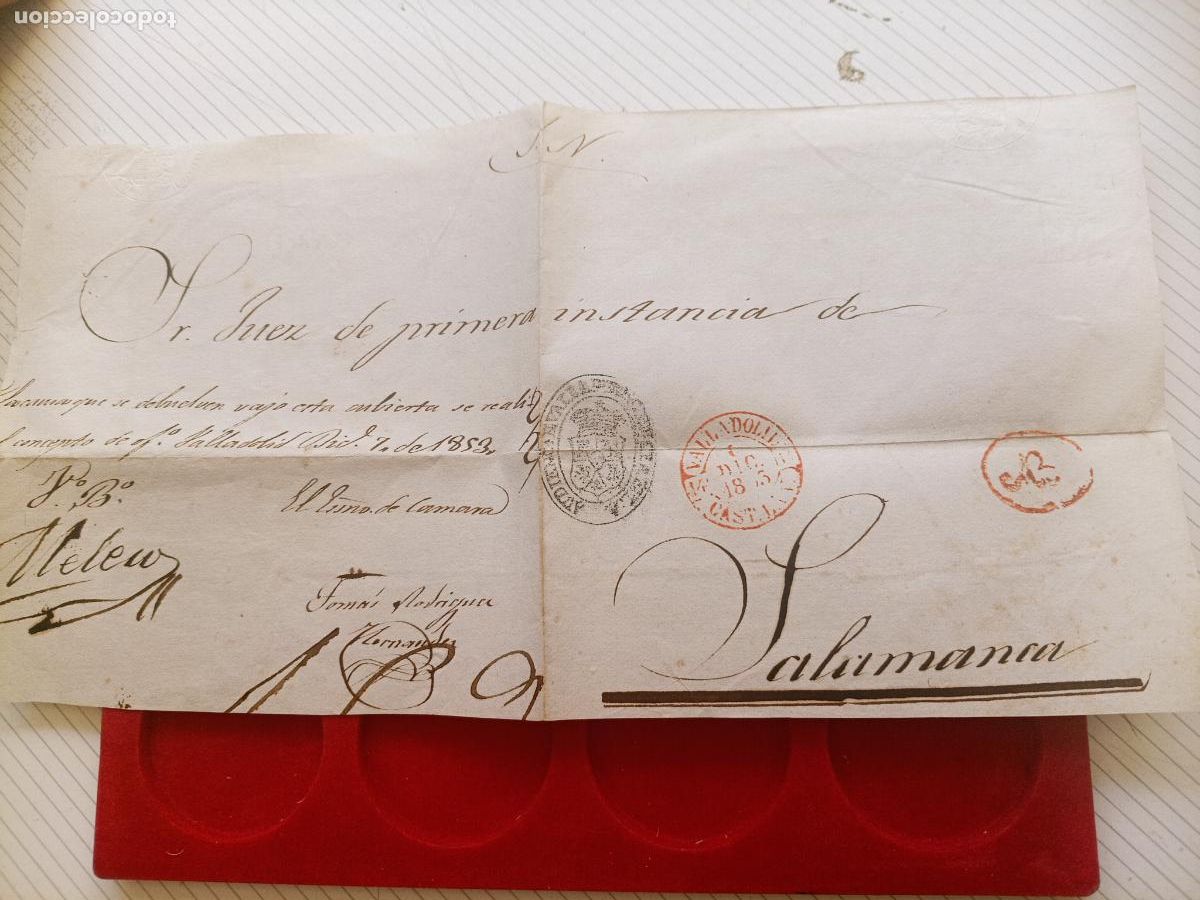 todocoleccion
S. N.
Sr. Juez de primera instancia de
que se debuelven vajo esta cubierta se reali
concepto de ofo. Valladolid Dice. 7. de 1853.
Vo. Bo.
El de Camara
Tomás Rodriguez
Hernandez
VALLADOLID
DIC.
CAST. LA V.
Salamanca